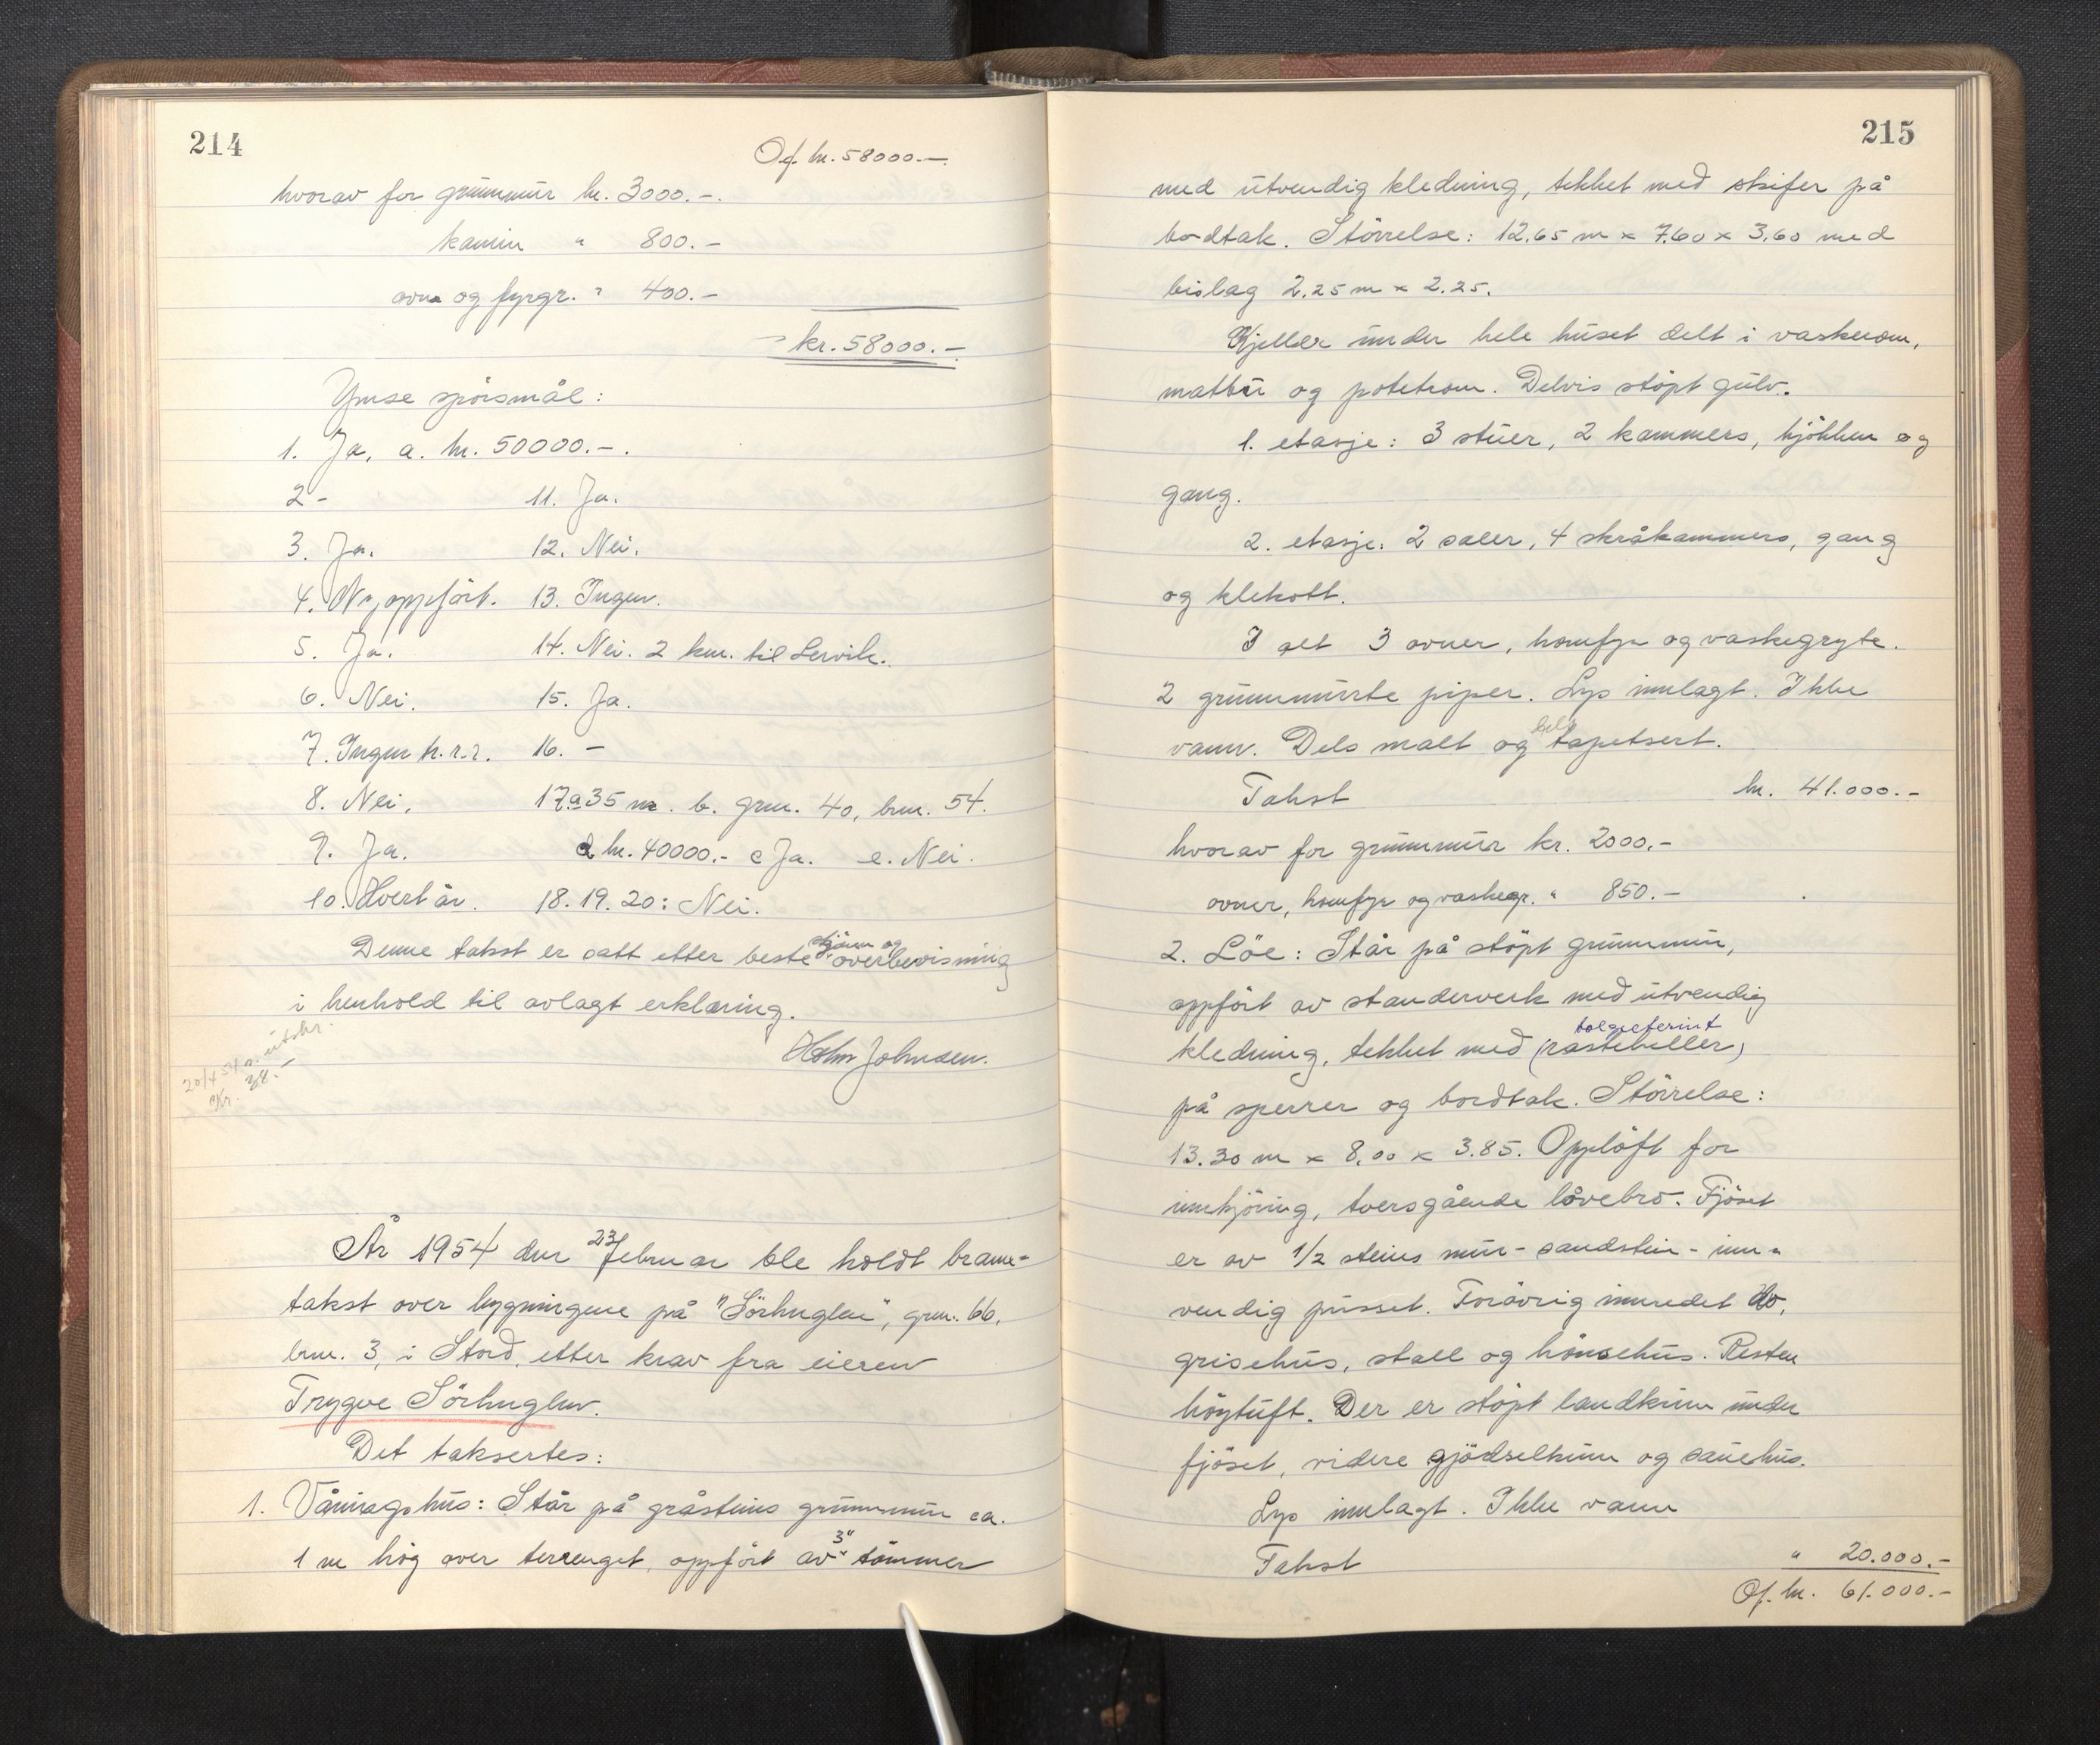 214
Of. kr. 58000.-
hvorav for grunnmur kr. 3000.-.
kamin " 800.-
ovn og fyrgr. " 400.-
kr. 58000.-
Ymse spörsmål:
1. Ja, a. kr. 50000.-.
2 - 11. Ja.
3. Ja. 12. Nei.
4. Ny oppfört. 13. Ingen.
5. Ja. 14. Nei. 2 km. til Lervik.
6. Nei. 15. Ja.
7. Ingen 16. -
8. Nei. 17. a 35 m. b. grn. 40, brn. 54.
9. Ja. d kr. 40000.- c Ja. e. Nei.
10. Hvert år. 18. 19. 20: Nei.
Denne takst er satt etter beste skjönn og overbevisning
i henhold til avlagt erklæring.
Johnsen.
20/4 54 utskr.
Kr. 38.-
År 1954 den 23 februar ble holdt brann-
takst over bygningene på "Sörhuglen", grn. 66,
brn. 3, i Stord, etter krav fra eieren
Trygve Sörhuglen.
Det taksertes:
1. Våningshus: Står på gråsteins grunnmur ca.
1 m hög over terrenget, oppfört av 3" tömmer
215
med utvendig kledning, tekket med skifer på
bordtak. Störrelse: 12,65 m x 7.60 x 3,60 med
bislag 2.25 m x 2.25.
Kjeller under hele huset delt i vaskerom,
matbu og potetrom. Delvis stöpt gulv.
1. etasje: 3 stuer, 2 kammers, kjökken og
gang.
2. etasje: 2 saler, 4 skråkammers, gang
og klekott.
I alt 3 ovner, komfyr og vaskegryte.
2 grunnmurte piper. Lys innlagt. Ikke
vann. Dels malt og dels tapetsert.
Takst kr. 41.000.-
hvorav for grunnmur kr. 2000.-
ovner, komfyr og vaskegr. " 850.-
2. Löe: Står på stöpt grunnmur,
oppfört av standerverk med utvendig
kledning, tekket med (rasteheller) bølgeeternit
på sperrer og bordtak. Störrelse:
13.30 m x 8,00 x 3.85. Opplöft for
innkjöring, tversgående låvebro. Fjöset
er av 1/2 steins mur - sandstein - inn-
vendig pusset. Forövrig innredet do,
grisehus, stall og hönsehus. Resten
höytuft. Der er stöpt landkum under
fjöset, videre gjödselkum og sauehus.
Lys innlagt. Ikke vann
Takst " 20.000.-
Of. kr. 61.000.-